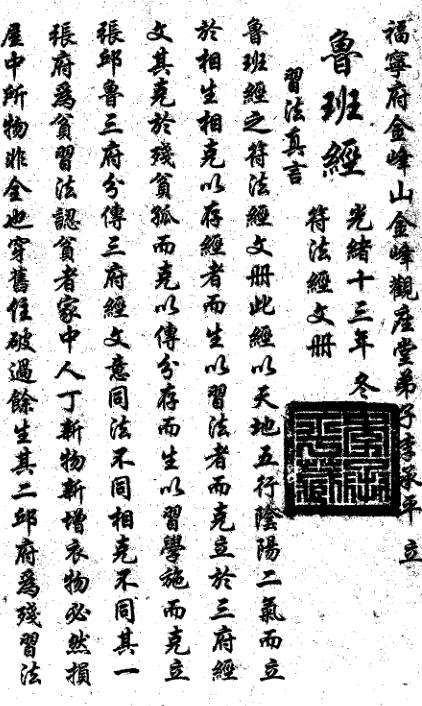 福寧府金峰山金峰觀座堂弟子李承平立
魯班經 光緒十三年冬
符法經文册
習法真言
魯班經之符法經文册此經以天地五行陰陽二氣而立
於相生相克以存經者而生以習法者而克立於三府經
文其克於殘貧孤而克以傳分存而生以習學施而克立
張邱魯三府分傳三府經文意同法不同相克不同其一
張府為貧習法認貧者家中人丁新物新增衣物必然損
屋中所物非全也穿舊住破過餘生其二邱府為殘習法